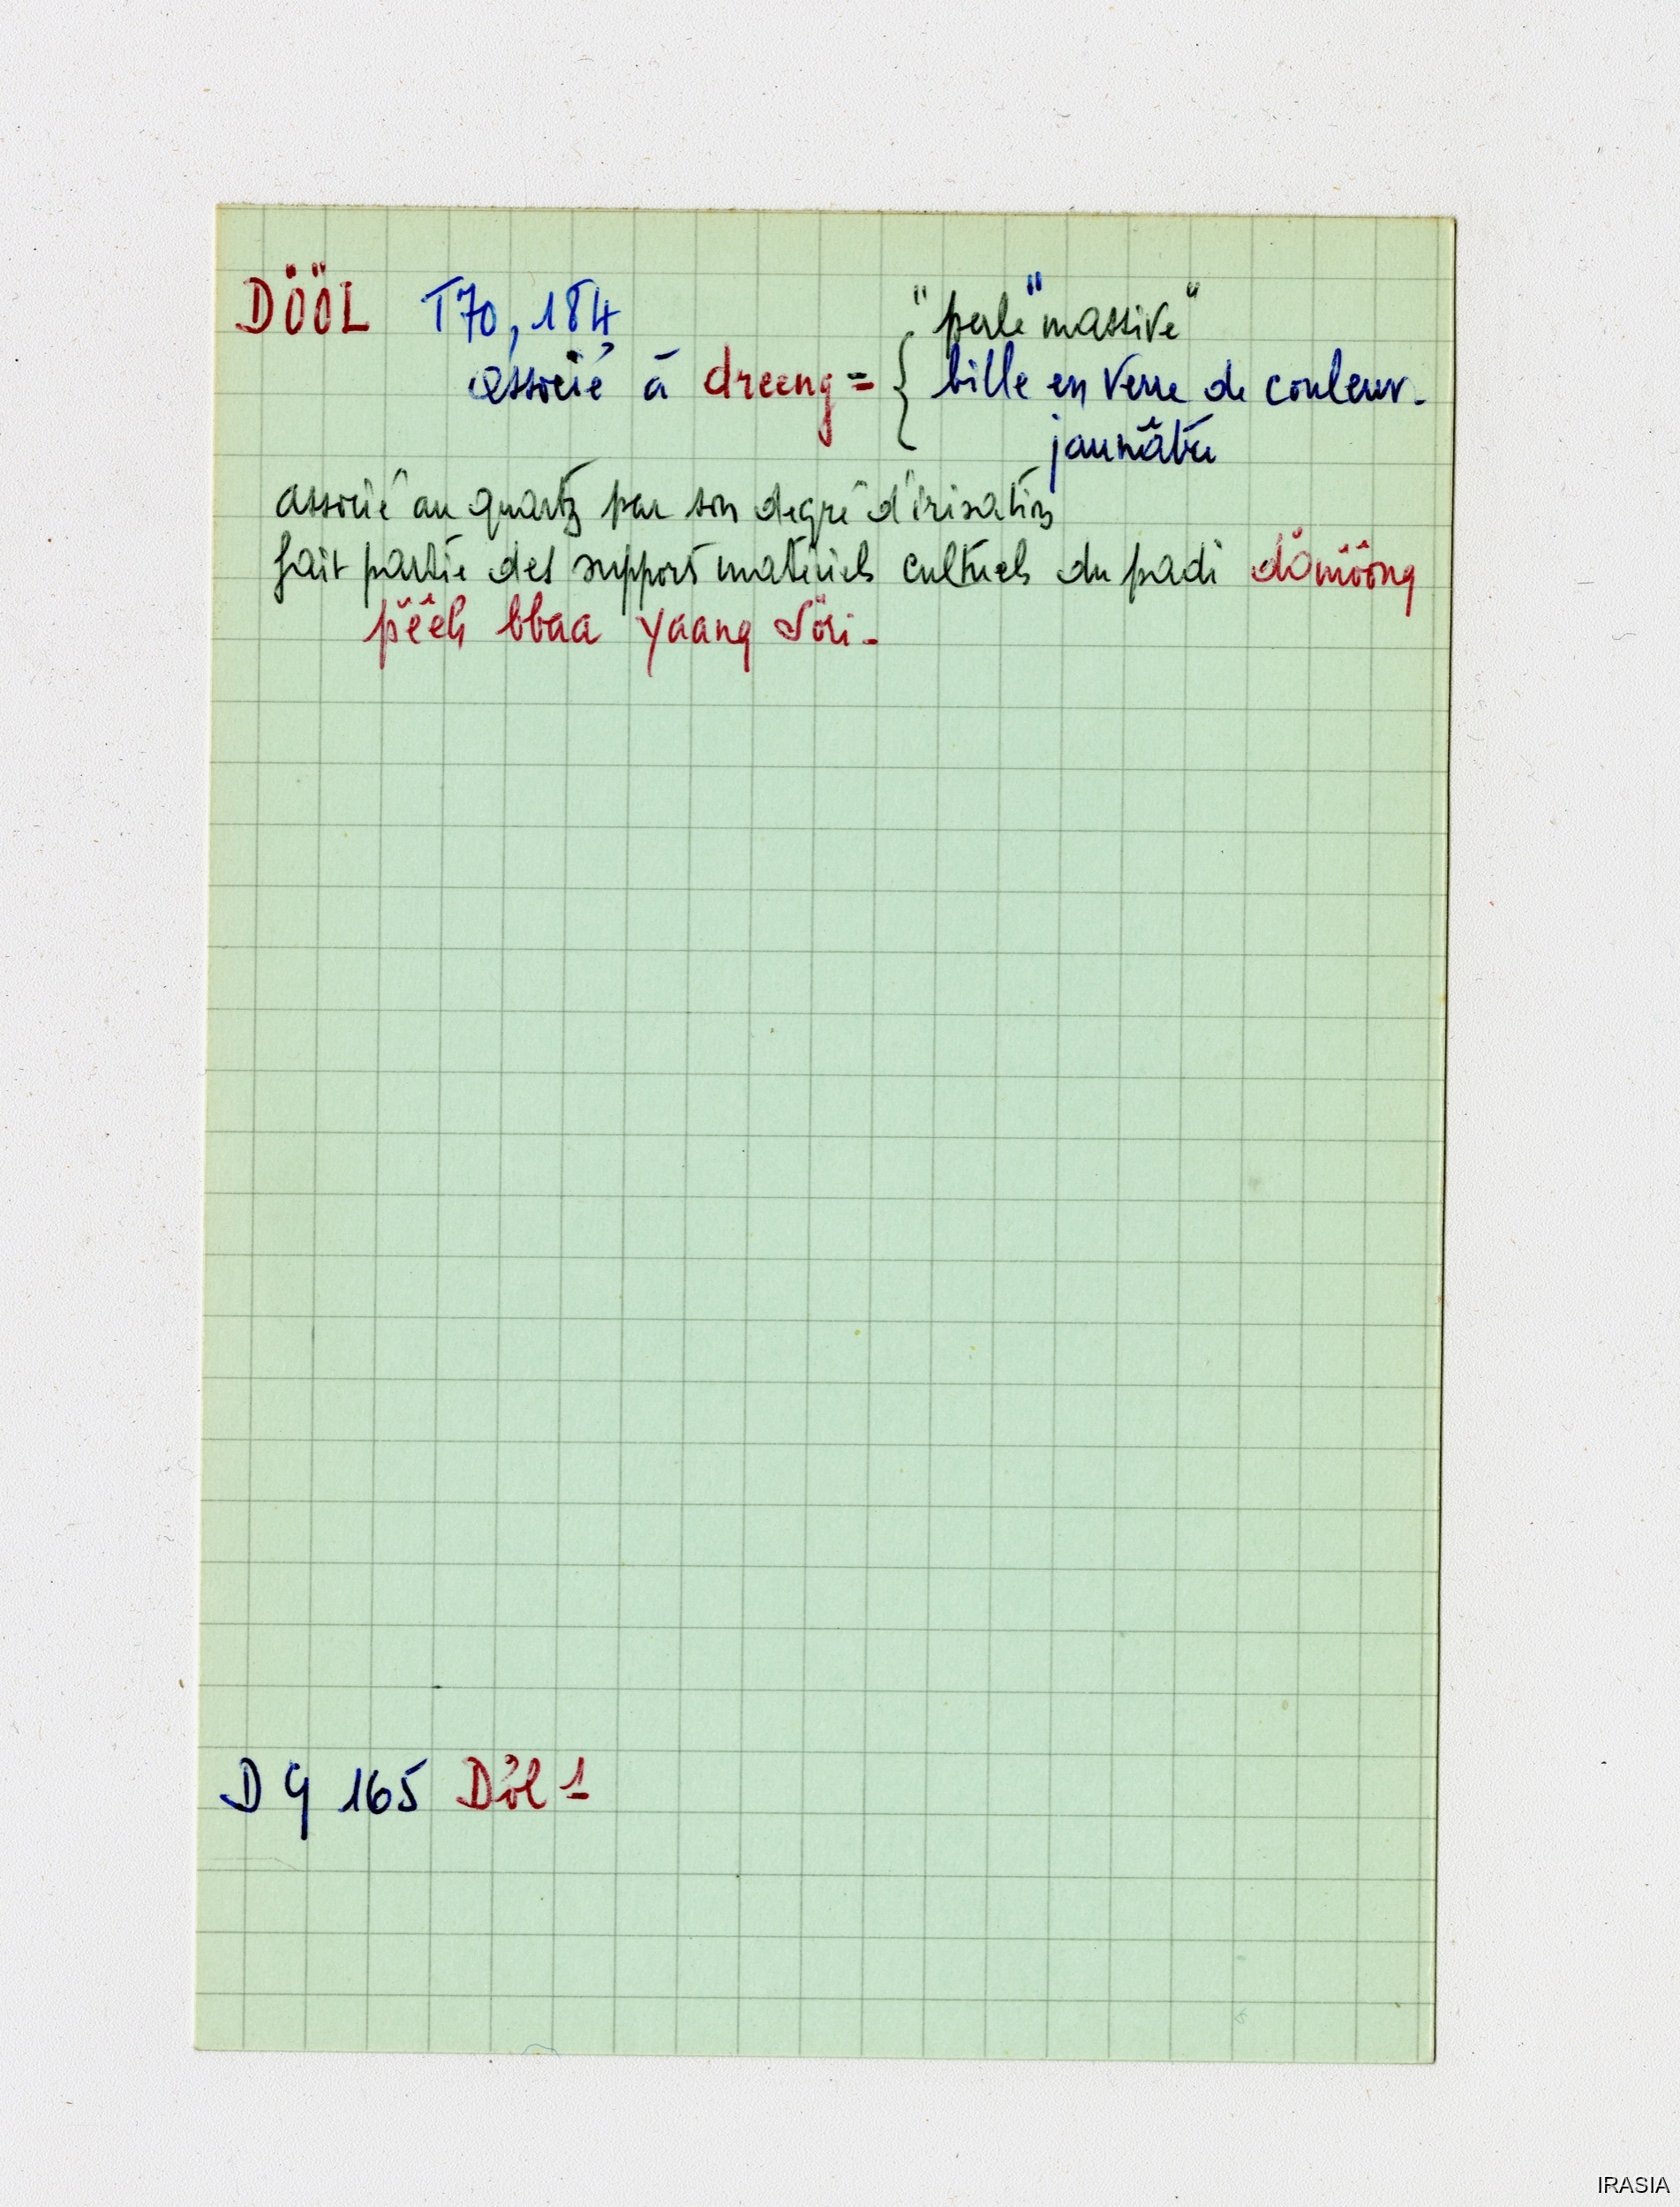 DÖÖL T70, 184
"perle" massive"
associé à dreeng = { bille en verre de couleur.
jaunâtre
associé au quartz par son degré d'irisation
fait partie des supports matériels cultuels du padi dömöông
pêêh bbaa yaang Söri.
DG 165 Döl 1
IRASIA